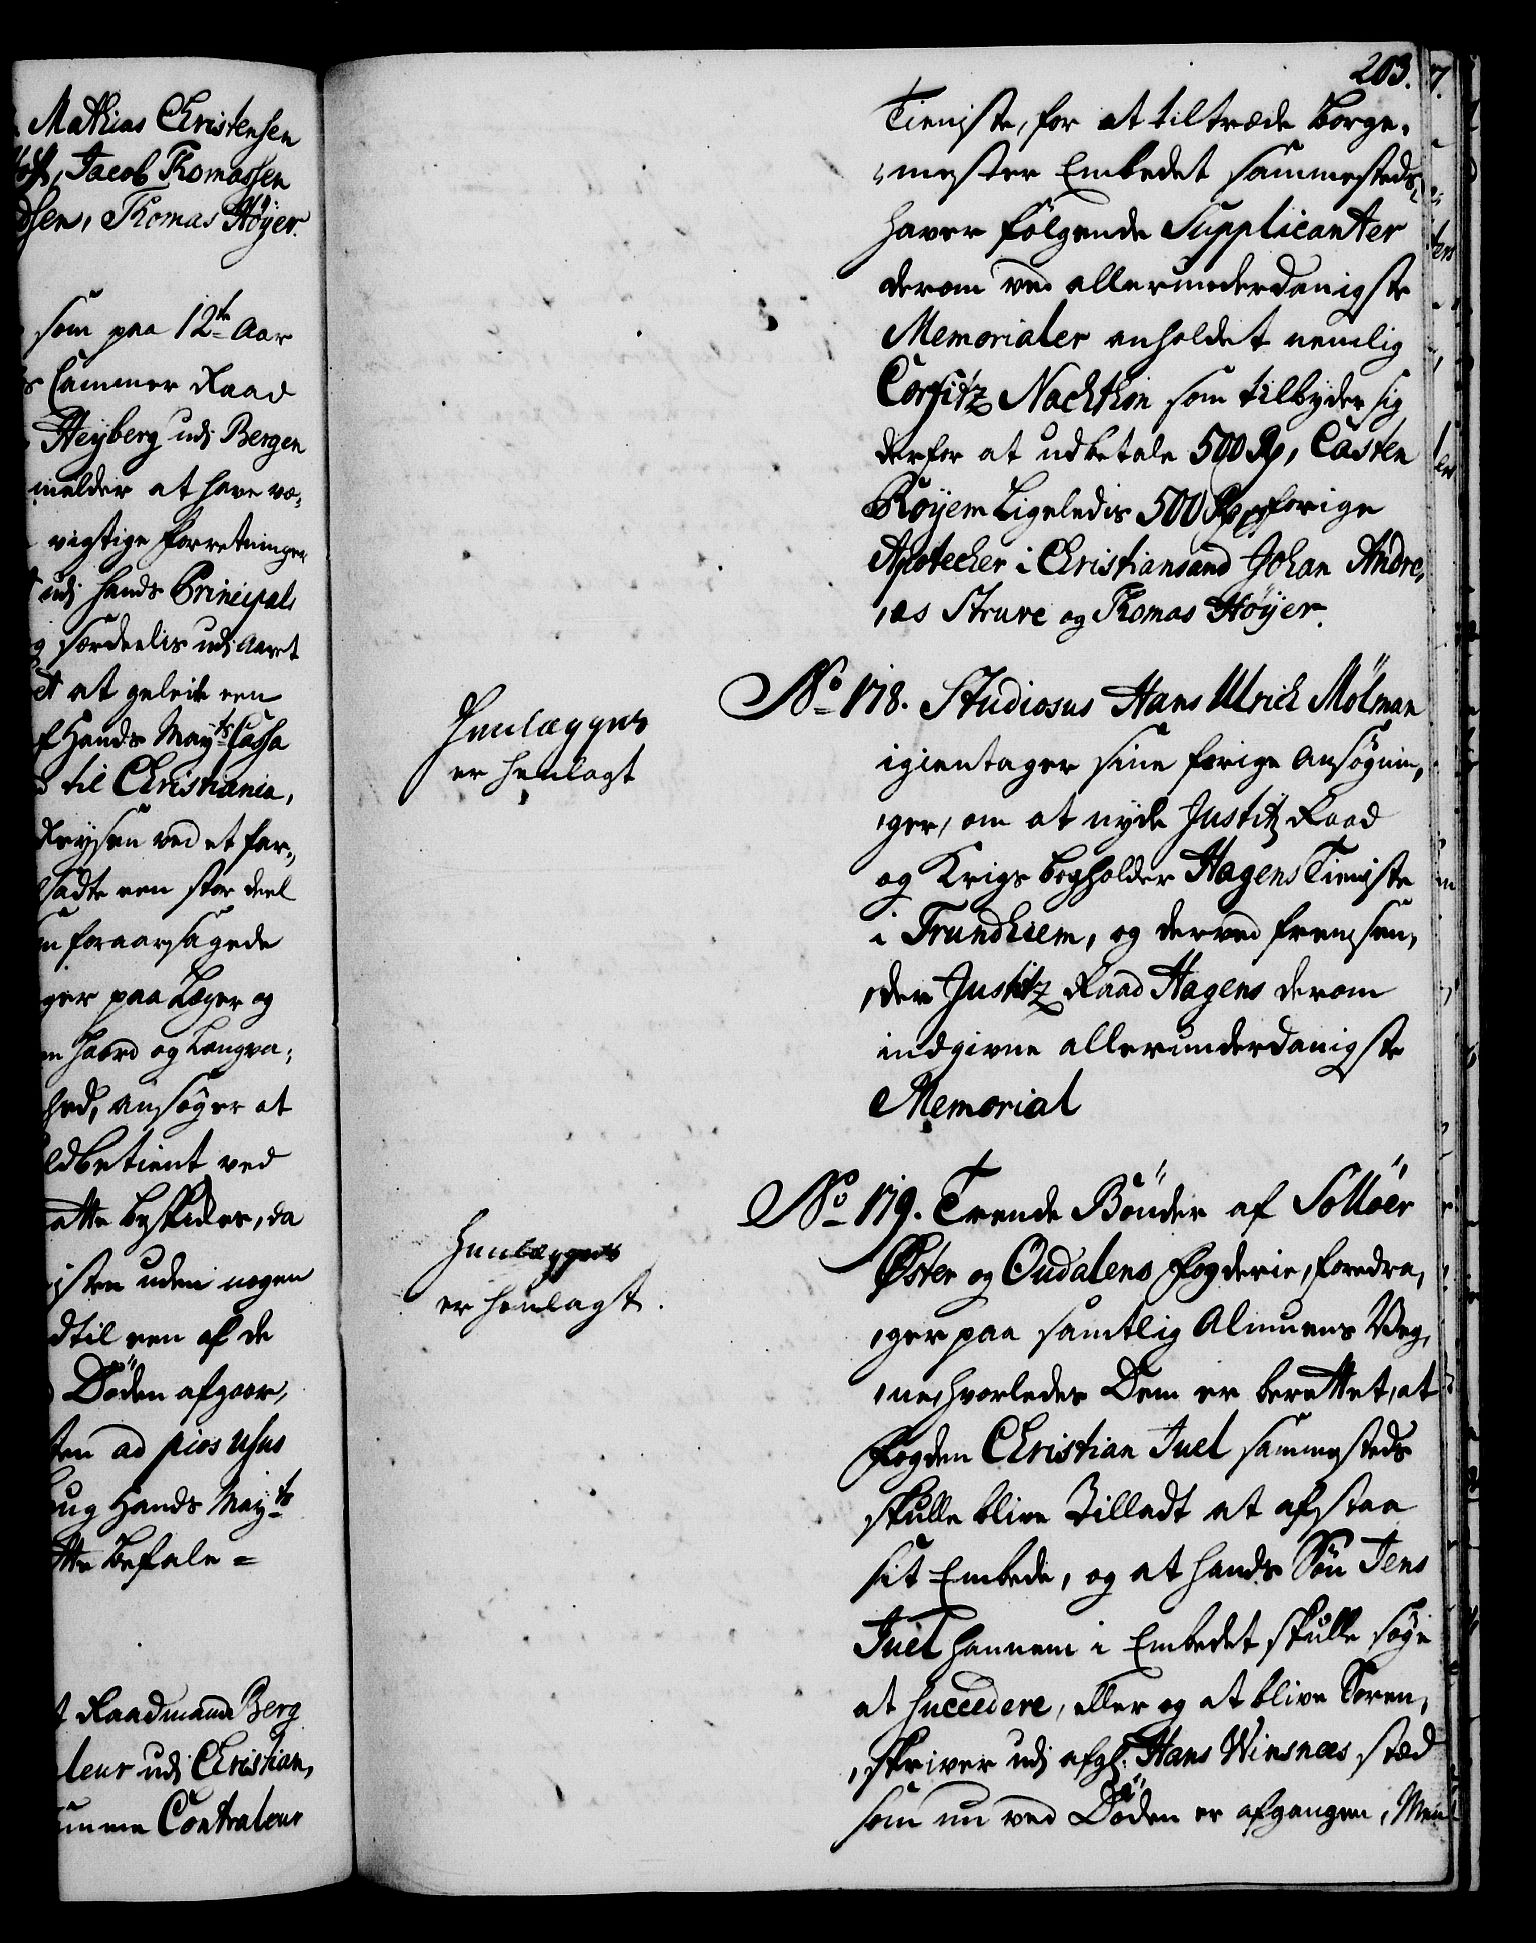 Mathias Christensen
Jacob Thomassen
Thomas Höyer.
som paa 12te Aar
Cammer Raad
Heyberg udj Bergen
melder at have væ,
vigtige Forretninger
udj hands Principals
særdeelis udj Aaret
at geleite een
Hands Mayts Cassa
til Christiania,
Reysen ved et far,
een stor deel
foraarsagede
paa Læger og
haard og Langva,
ansöger at
betient ved
uden nogen
til een af de
Döden afgaar,
ad pios usus
Hands Mayts
Befale =
Raadmand Berg
udj Christian,
Contraleur
203.
Tieniste, for at tiltræde Borge,
,mester Embedet sammesteds,
haver fölgende Supplicanter
derom ved allerunderdanigste
Memorialer anholdet nemlig
Corfitz Nachthon som tilbyder sig
derfor at udbetale 500 Rdr, Casten
Röyem Ligeledis 500 Rdr forige
Apotecher i Christiansand Johan Andre,
,as Struve og Thomas Höyer.
No 178. Studiosus Hans Ulrich Mölman
igientager sine forige Ansögnin,
,ger, om at nyde Justitz Raad
og Krigs bogholder Hagens Tieniste
i Trundhiem, og derved fremsen,
,der Justitz Raad Hagens derom
indgivne allerunderdanigste
Memorial
Henlægges
er henlagt
No 179. Trende Bönder af Sollöer
Öster og Oudalens Fogderie, foredra,
,ger paa samtlig Almuens Veg,
,ne, hvorledes Dem er berettet, at
Fogden Christian Juel sammesteds
skulle blive Tilladt at afstaa
sit Embede, og at hands Sön Jens
Juel hannem i Embedet skulle söge
at succedere, eller og at blive Soren,
,skriver udj afgl. Hans Winsnæs stæd
som nu ved Döden er afgangen, Men
Henlægges
er henlagt.